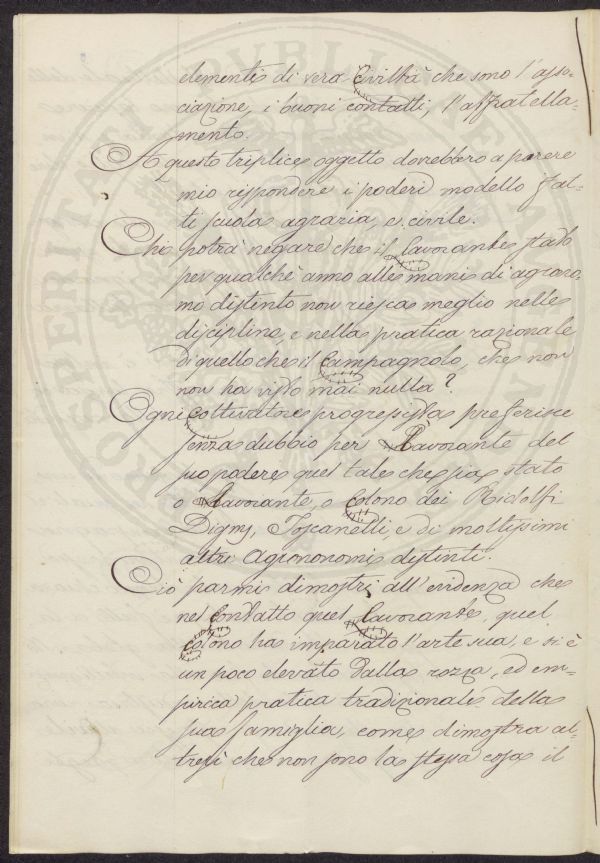 elementi di vera Civiltà che sono l'asso-
ciazione, i buoni contatti, l'affratella-
mento.
A questo triplice oggetto dovrebbero a parere
mio rispondere i poderi modello fat-
ti scuola agraria, e civile.
Chi potrà negare che il lavorante stato
per qualche anno alle mani di agrono-
mo distinto non riesca meglio nelle
discipline, e nella pratica razionale
di quello che il Campagnolo, che non
non ha visto mai nulla?
Ogni coltivatore progressista preferisce
senza dubbio per Lavorante del
suo podere quel tale che sia stato
o Lavorante, o Colono dei Ridolfi
Digny, Toscanelli, e di moltissimi
altri Agrononomi distinti.
Ciò parmi dimostri all'evidenza che
nel Contatto quel Lavorante, quel
colono ha imparato l'arte sua, e si è
un poco elevato dalla rozza, ed em-
pirica pratica tradizionale della
sua famiglia, come dimostra al-
tresì che non sono la stessa cosa il